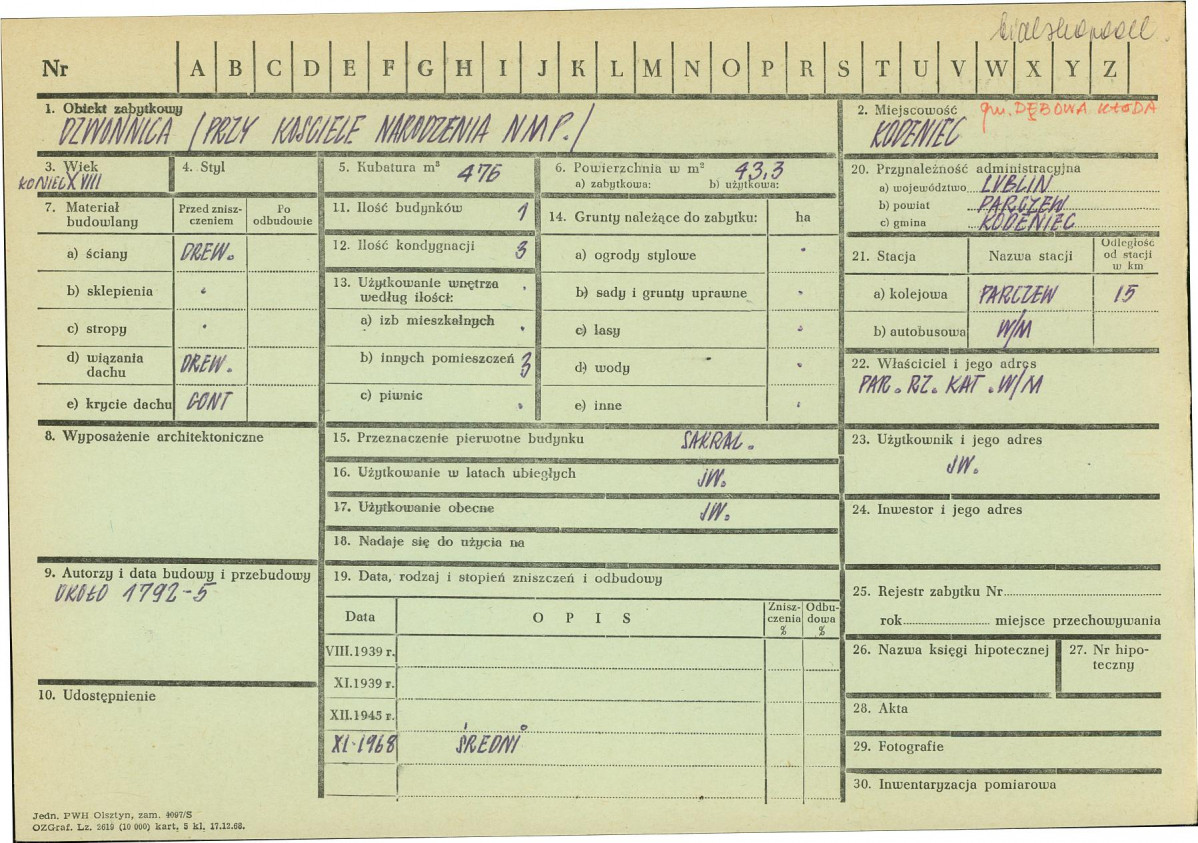 bialskopodl.
Nr A B C D E F G H I J K L M N O P R S T U V W X Y Z
1. Obiekt zabytkowy
DZWONNICA /PRZY KOŚCIELE NARODZENIA NMP./
2. Miejscowość
gm. DĘBOWA KŁODA
KODENIEC
3. Wiek
KONIEC XVIII
4. Styl
5. Kubatura m³ 476
6. Powierzchnia w m² 43,3
a) zabytkowa: b) użytkowa:
20. Przynależność administracyjna
a) województwo LUBLIN
b) powiat PARCZEW
c) gmina KODENIEC
7. Materiał budowlany
Przed zniszczeniem
Po odbudowie
a) ściany DREW.
b) sklepienia -
c) stropy -
d) wiązania dachu DREW.
e) krycie dachu GONT
11. Ilość budynków 1
12. Ilość kondygnacji 3
13. Użytkowanie wnętrza według ilości: -
a) izb mieszkalnych -
b) innych pomieszczeń 3
c) piwnic -
14. Grunty należące do zabytku: ha
a) ogrody stylowe -
b) sady i grunty uprawne -
c) lasy -
d) wody -
e) inne -
21. Stacja Nazwa stacji Odległość od stacji w km
a) kolejowa PARCZEW 15
b) autobusowa W/M
22. Właściciel i jego adres
PAR. RZ. KAT. W/M
8. Wyposażenie architektoniczne
15. Przeznaczenie pierwotne budynku SAKRAL.
16. Użytkowanie w latach ubiegłych JW.
17. Użytkowanie obecne JW.
18. Nadaje się do użycia na
23. Użytkownik i jego adres
JW.
24. Inwestor i jego adres
9. Autorzy i data budowy i przebudowy
OKOŁO 1792-5
19. Data, rodzaj i stopień zniszczeń i odbudowy
Data OPIS Zniszczenia % Odbudowa %
VIII.1939 r.
XI.1939 r.
XII.1945 r.
XI-1968 ŚREDNI
25. Rejestr zabytku Nr
rok miejsce przechowywania
26. Nazwa księgi hipotecznej
27. Nr hipoteczny
10. Udostępnienie
28. Akta
29. Fotografie
30. Inwentaryzacja pomiarowa
Jedn. PWH Olsztyn, zam. 4097/S
OZGraf. Lz. 2619 (10 000) kart. 5 kl. 17.12.68.